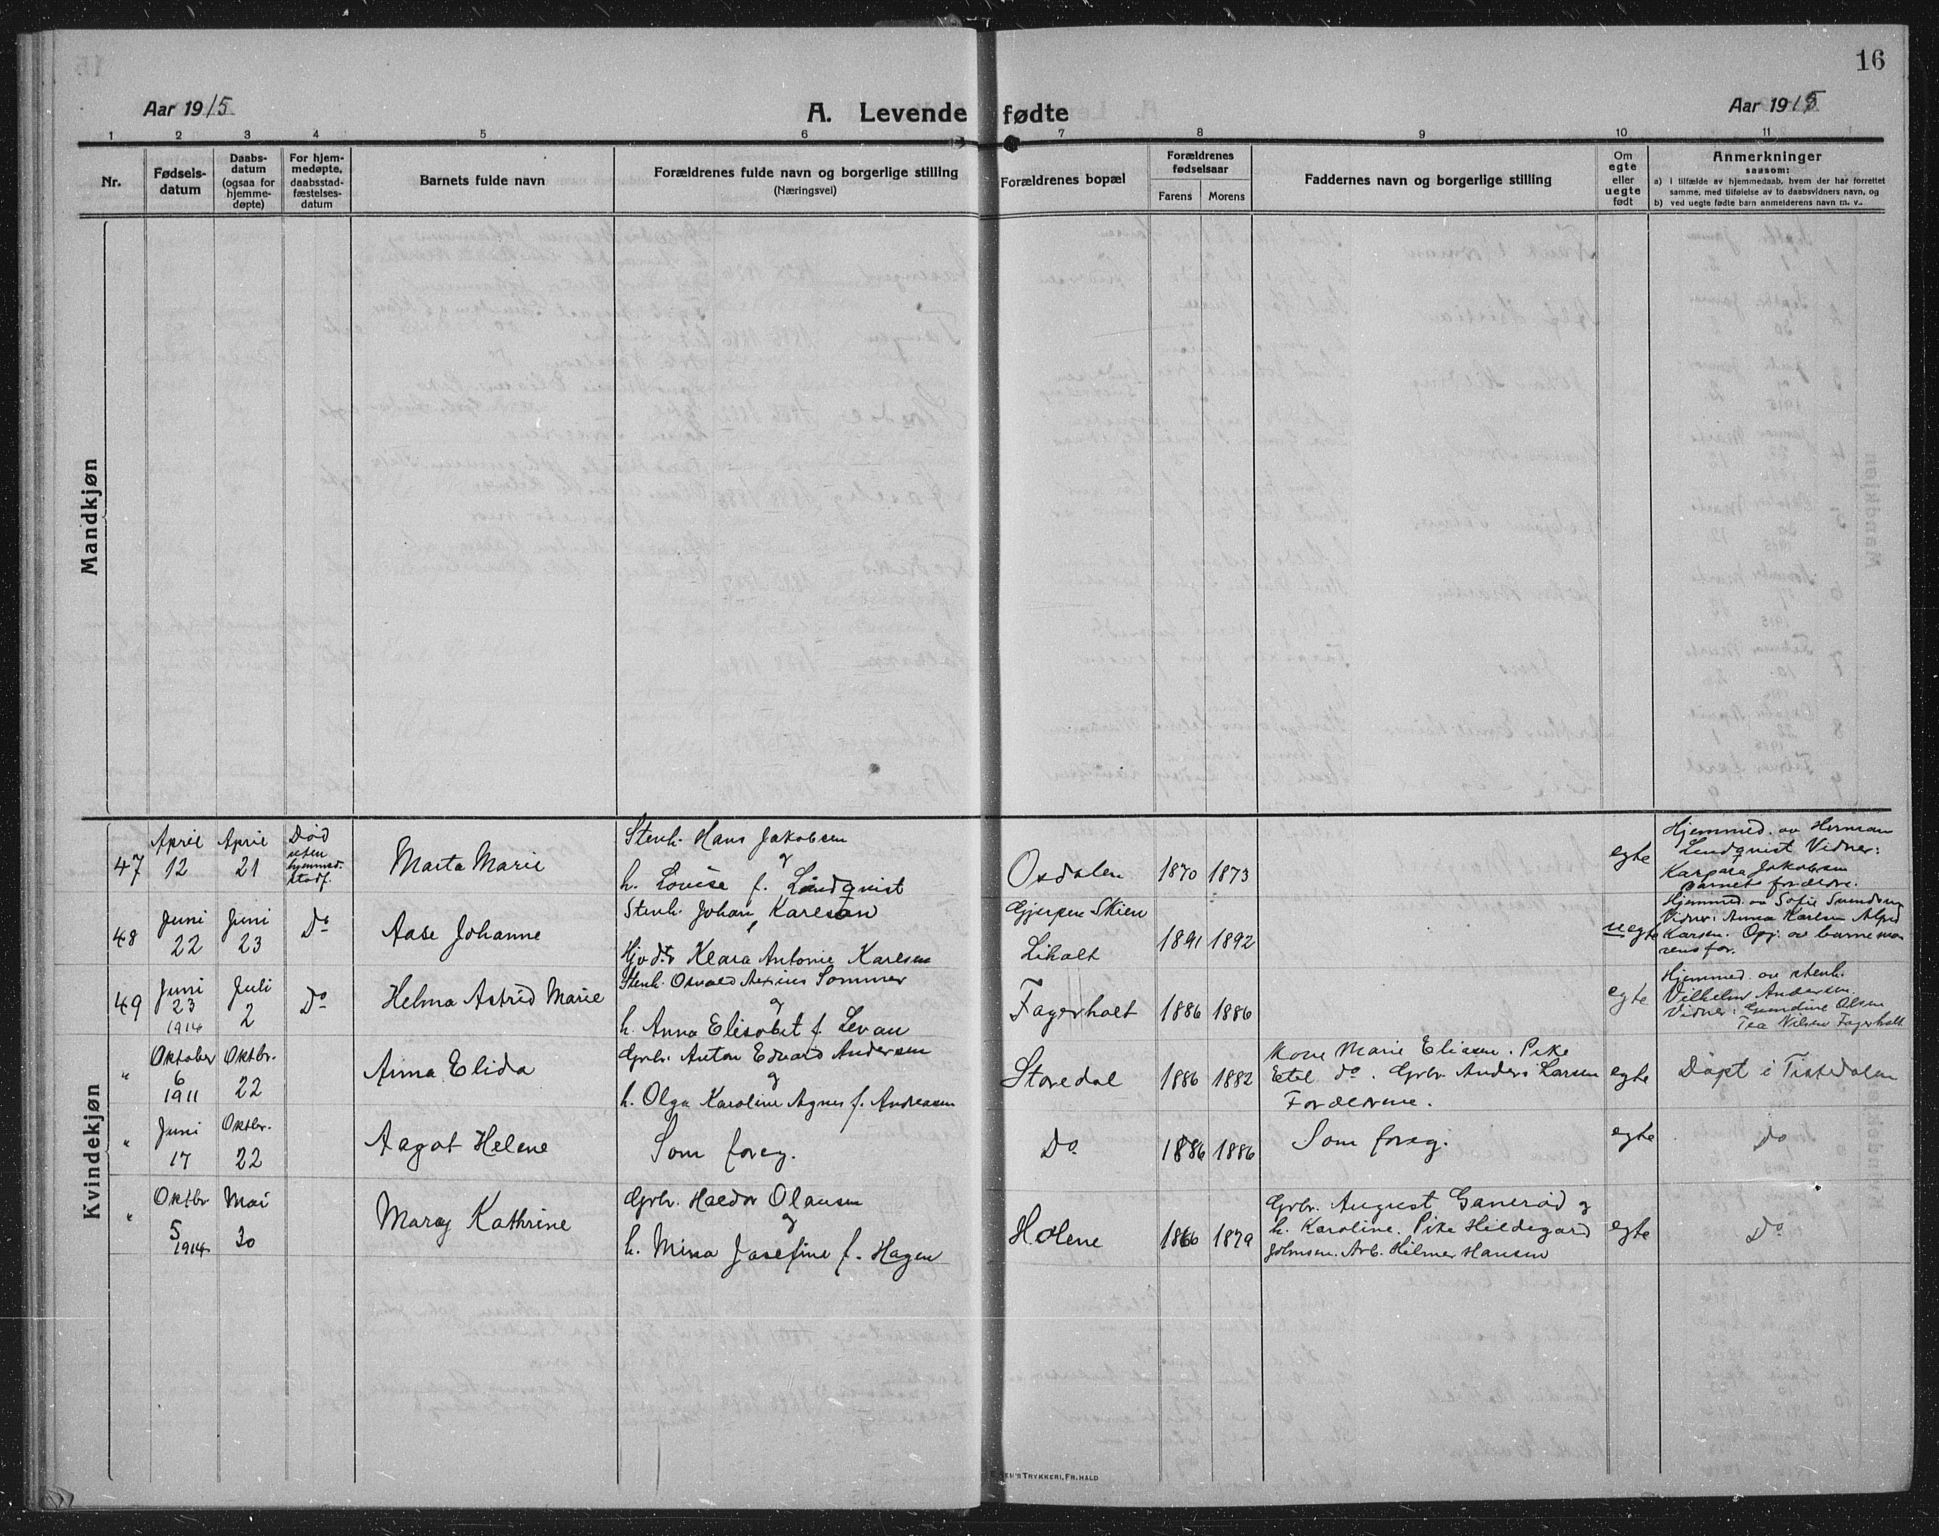 16
Aar 1915
A. Levende fødte
Aar 1915
1 2 3 4 5 6 7 8 9 10 11
Nr.
Fødsels-
datum
Daabs-
datum
(ogsaa for
hjemme-
døpte)
For hjem-
medøpte,
daabsstad-
fæstelses-
datum
Barnets fulde navn
Forældrenes fulde navn og borgerlige stilling
(Næringsvei)
Forældrenes bopæl
Forældrenes
fødselsaar
Farens Morens
Faddernes navn og borgerlige stilling
Om
egte
eller
uegte
født
Anmerkninger
saasom:
a) i tilfælde av hjemmedaab, hvem der har forrettet
samme, med tilføielse av to daabsvidners navn, og
b) ved uegte fødte barn anmelderens navn m. v..
Mandkjøn
Kvindekjøn
47
April
12
April
21
Død
uten
hjemmed.
stadf.
Marta Marie
Stenh. Hans Jakobsen
og
h. Lovise f. Lindqvist
Osdalen
1870 1873
egte
Hjemmed. av Herman
Lindquist Vidner:
Jakobsen
barnets forældre.
48
Juni
22
Juni
23
Do
Aase Johanne
Stenh. Johan Karlsen
Klara Antonie Karlsen
Gjerpen Skien
Liholt
1891 1892
uegte
Hjemmed. av Sofie Svendsen
Vidner: Anna Karlsen Alfred
Karlsen. Opg. av barnemo
rens far.
49
Juni
23
1914
Juli
2
Do
Helma Astrid Marie
Stenh. Osvald Sommer
og
h. Anna Elisabet f. Levau
Fagerholt
1886 1886
egte
Hjemmed. av stenh.
Vilhelm Andersen.
Vidner: Gundine Olsen
Tea Nilsen Fagerholt
"
Oktober
6
1911
Oktbr.
22
Anna Elida
Grbr. Anton Edvard Andersen
og
h. Olga Karoline Agnes f. Andreasen
Storedal
1886 1882
Kone Marie Eliasen. Pike
Etel do. Grbr. Anders Larsen
Forældrene.
egte
Døpt i Tistedalen
"
Juni
17
Oktbr.
22
Aagot Helene
Som foreg.
Do
1886 1886
Som foreg.
egte
Do
"
Oktbr
5
1914
Mai
30
Mary Kathrine
Grbr. Haldor Olausen
og
h. Mina Josefine f. Hagen
Holene
1866 1879
Grbr. August Ganerød og
h. Karoline. Pike Hildegard
Johnsen. Arb. Hilmer Hansen
egte
Do
TRYKKERI, FR. HALD